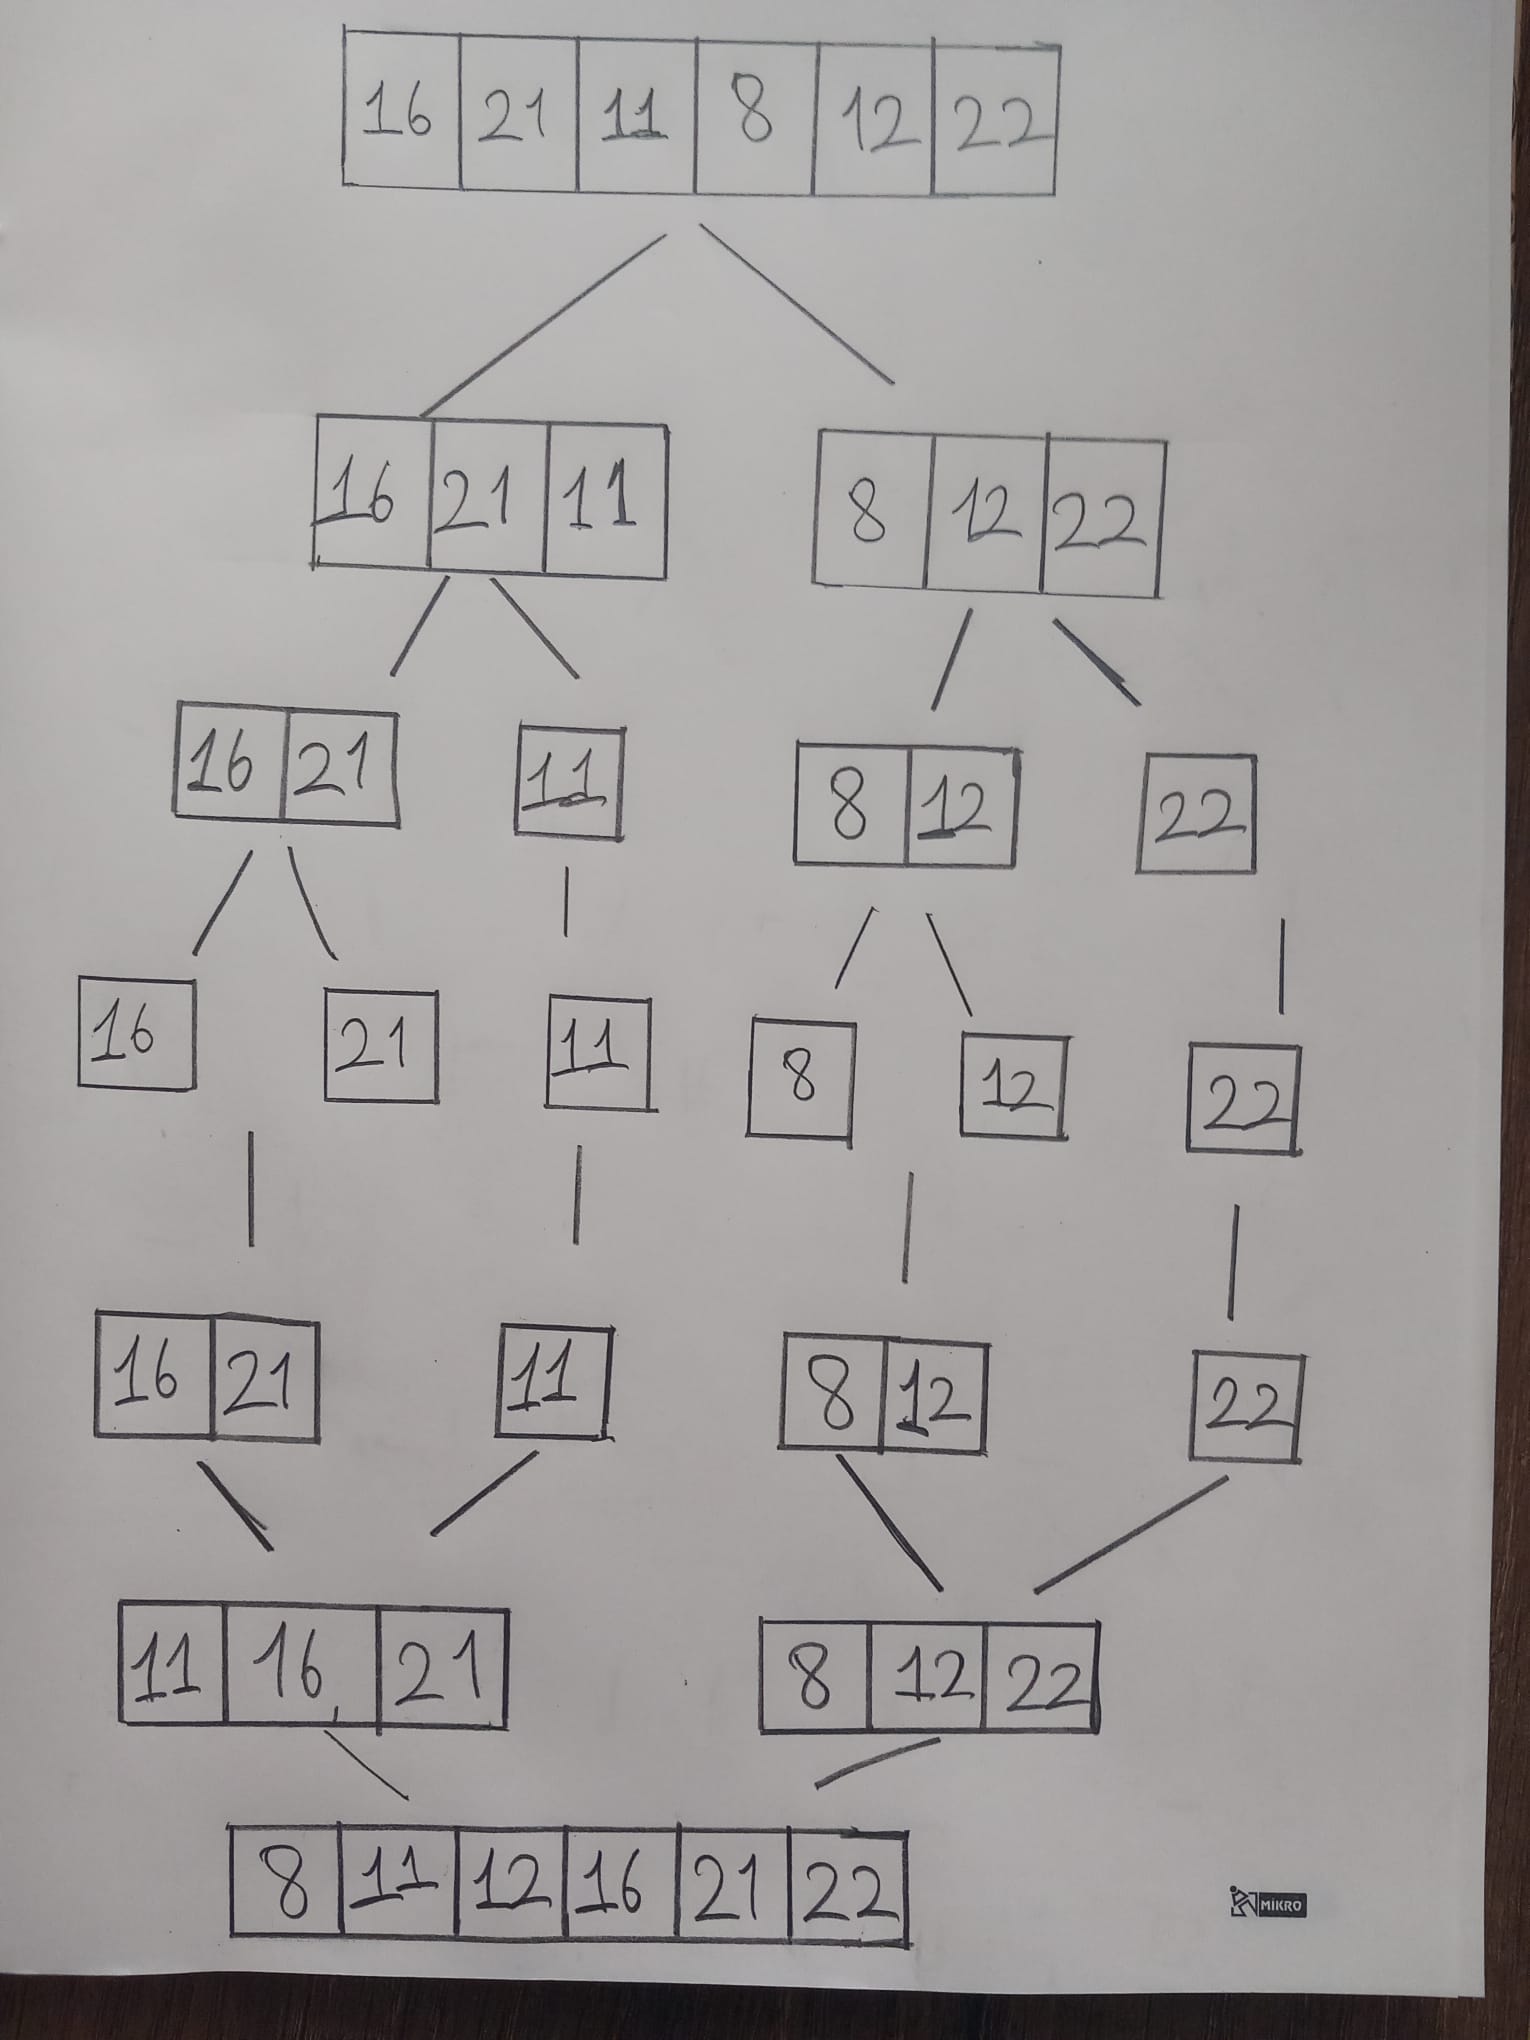 16 21 11 8 12 22
16 21 11 8 12 22
16 21 11 8 12 22
16 21 11 8 12 22
16 21 11 8 12 22
11 16 21 8 12 22
8 11 12 16 21 22
MİKRO